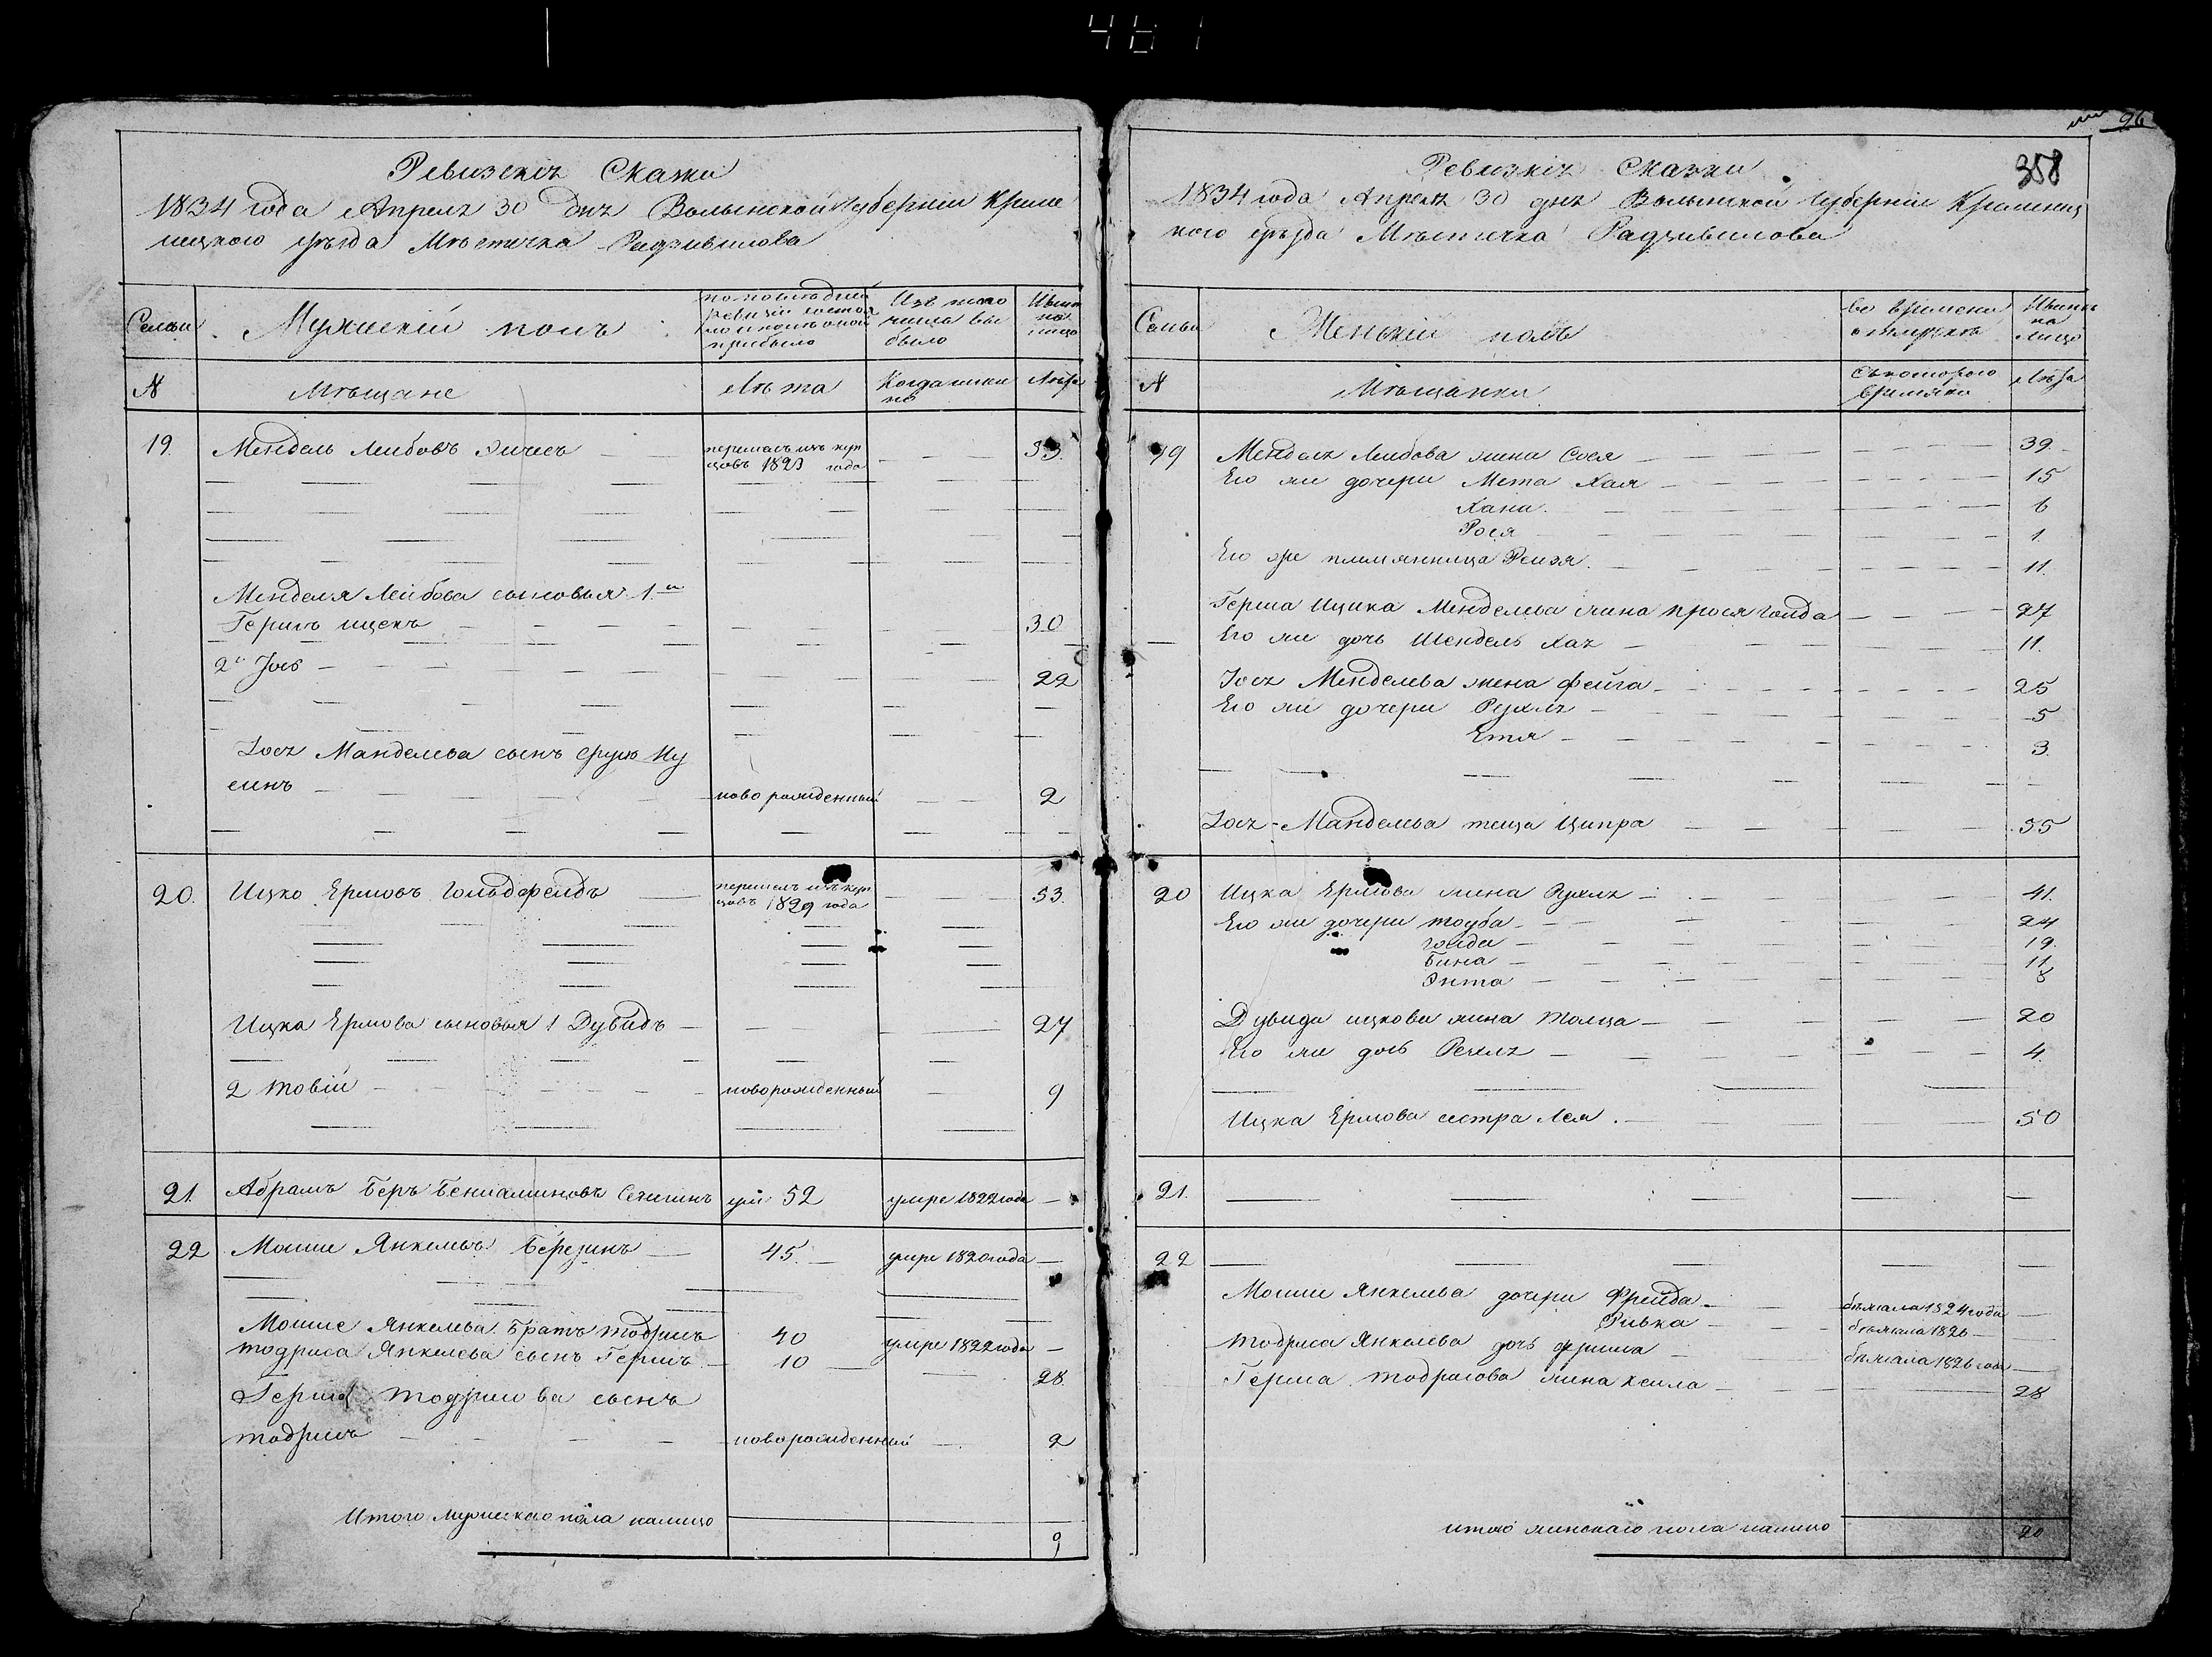 461
Ревизскія Скажи
1834 года Апреля 30 дня Волынской губерніи Креме
нецкого уѣзда Мѣстечка Радзивилова
Семьи
Мужескій полъ
по последней
ревизіи состоя
ло и после оной
прибыло
Изъ того
числа вы
было
Нынѣ
на
лицо
№
Мѣщане
Лѣта
Когда имен
но
Лѣта
19. Мендель Лейбовъ перешелъ изъ куп 53.
цовъ 1823 года
Менделя Лейбова сыновья 1й
Гершъ ицекъ 30
2й Іось 22
Іося Манделева сынъ Сруль Ну
синъ новорожденный 2
20. Ицко Ермовъ Гольдфельдъ перешелъ изъ куп 53.
цовъ 1829 года
Ицка Ермова сыновья 1 Дувидъ 27
2 товій новорожденный 9
21. Абрамъ Беръ Беніаминовъ 52 умре 1822 года
22 Мошше Янкелевъ Березинъ 45. умре 1820 года
Мошше Янкелева Братъ тодрисъ 40 умре 1822 года
тодриса Янкелева сынъ Гершъ 10 28.
Герша тодрисова сынъ
тодрисъ новорожденный 2
Итого мужескаго пола налицо 9
96
358
Ревизкія Сказки
1834 года Апреля 30 дня Волынской Губерніи Кременец
кого уѣзда Мѣстечка Радзивилова
Семьи
Женскій полъ
во времени
отлучкѣ
Нынѣ
на
лицо
№
Мѣщанки
Съ котораго
времяни
Лѣта
19 Менделя Лейбова жена Сося 39.
Его же дочери Мета Хая 15
Хана. 6
Рося 1
Его же племянница Рейзя. 11.
Герша Ицика Менделева жена прося голда 27
Его же дочь Шендель Хая 11.
Іося Менделева жена фейга 25
Его же дочери Рухля 5
Етя 3.
Іося Манделева теща Ципра 55
20 Ицка Ермова жена Рухля 41.
Его же дочери тоуба 24
голда 19.
Бина 11
Энта 8
Дувида ицкова жена 20
Его же дочь Рехля 4.
Ицка Ермова сестра Лея. 50
21.
22
Мошше Янкелева дочери Фрейда бежала 1824 года
Ривка бежала 1826
тодриса Янкелева дочь фрима бежала 1826 года
Герша тодрисова жена кейла 28
итого женскаго пола налицо 20